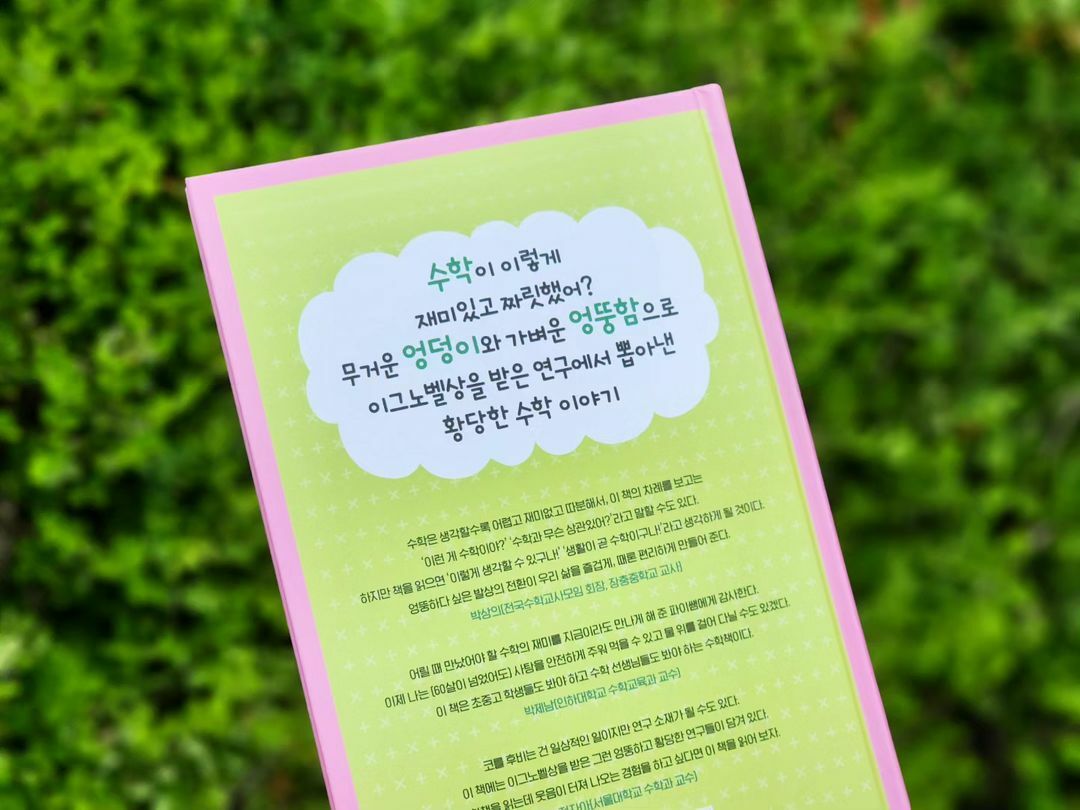 수학이 이렇게
재미있고 짜릿했어?
무거운 엉덩이와 가벼운 엉뚱함으로
이그노벨상을 받은 연구에서 뽑아낸
황당한 수학 이야기
수학은 생각할수록 어렵고 재미없고 따분해서, 이 책의 차례를 보고는
'이런 게 수학이야?' '수학과 무슨 상관있어?'라고 말할 수도 있다.
하지만 책을 읽으면 '이렇게 생각할 수 있구나!' '생활이 곧 수학이구나!'라고 생각하게 될 것이다.
엉뚱하다 싶은 발상의 전환이 우리 삶을 즐겁게, 때론 편리하게 만들어 준다.
박상의(전국수학교사모임 회장, 장충중학교 교사)
어릴 때 만났어야 할 수학의 재미를 지금이라도 만나게 해 준 파이쌤에게 감사한다.
이제 나는 (60살이 넘었어도) 사탕을 안전하게 주워 먹을 수 있고 물 위를 걸어 다닐 수도 있겠다.
이 책은 초중고 학생들도 봐야 하고 수학 선생님들도 봐야 하는 수학책이다.
박제남(인하대학교 수학교육과 교수)
코를 후비는 건 일상적인 일이지만 연구 소재가 될 수도 있다.
이 책에는 이그노벨상을 받은 그런 엉뚱하고 황당한 연구들이 담겨 있다.
읽는데 웃음이 터져 나오는 경험을 하고 싶다면 이 책을 읽어 보자.
수학과 교수)